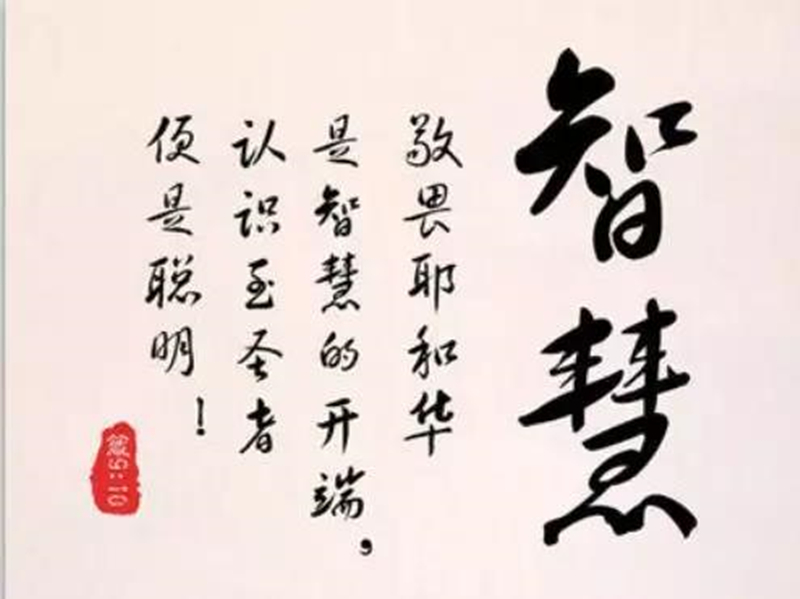 智慧
敬畏耶和华
是智慧的开端，
认识至圣者
便是聪明！
箴9:10